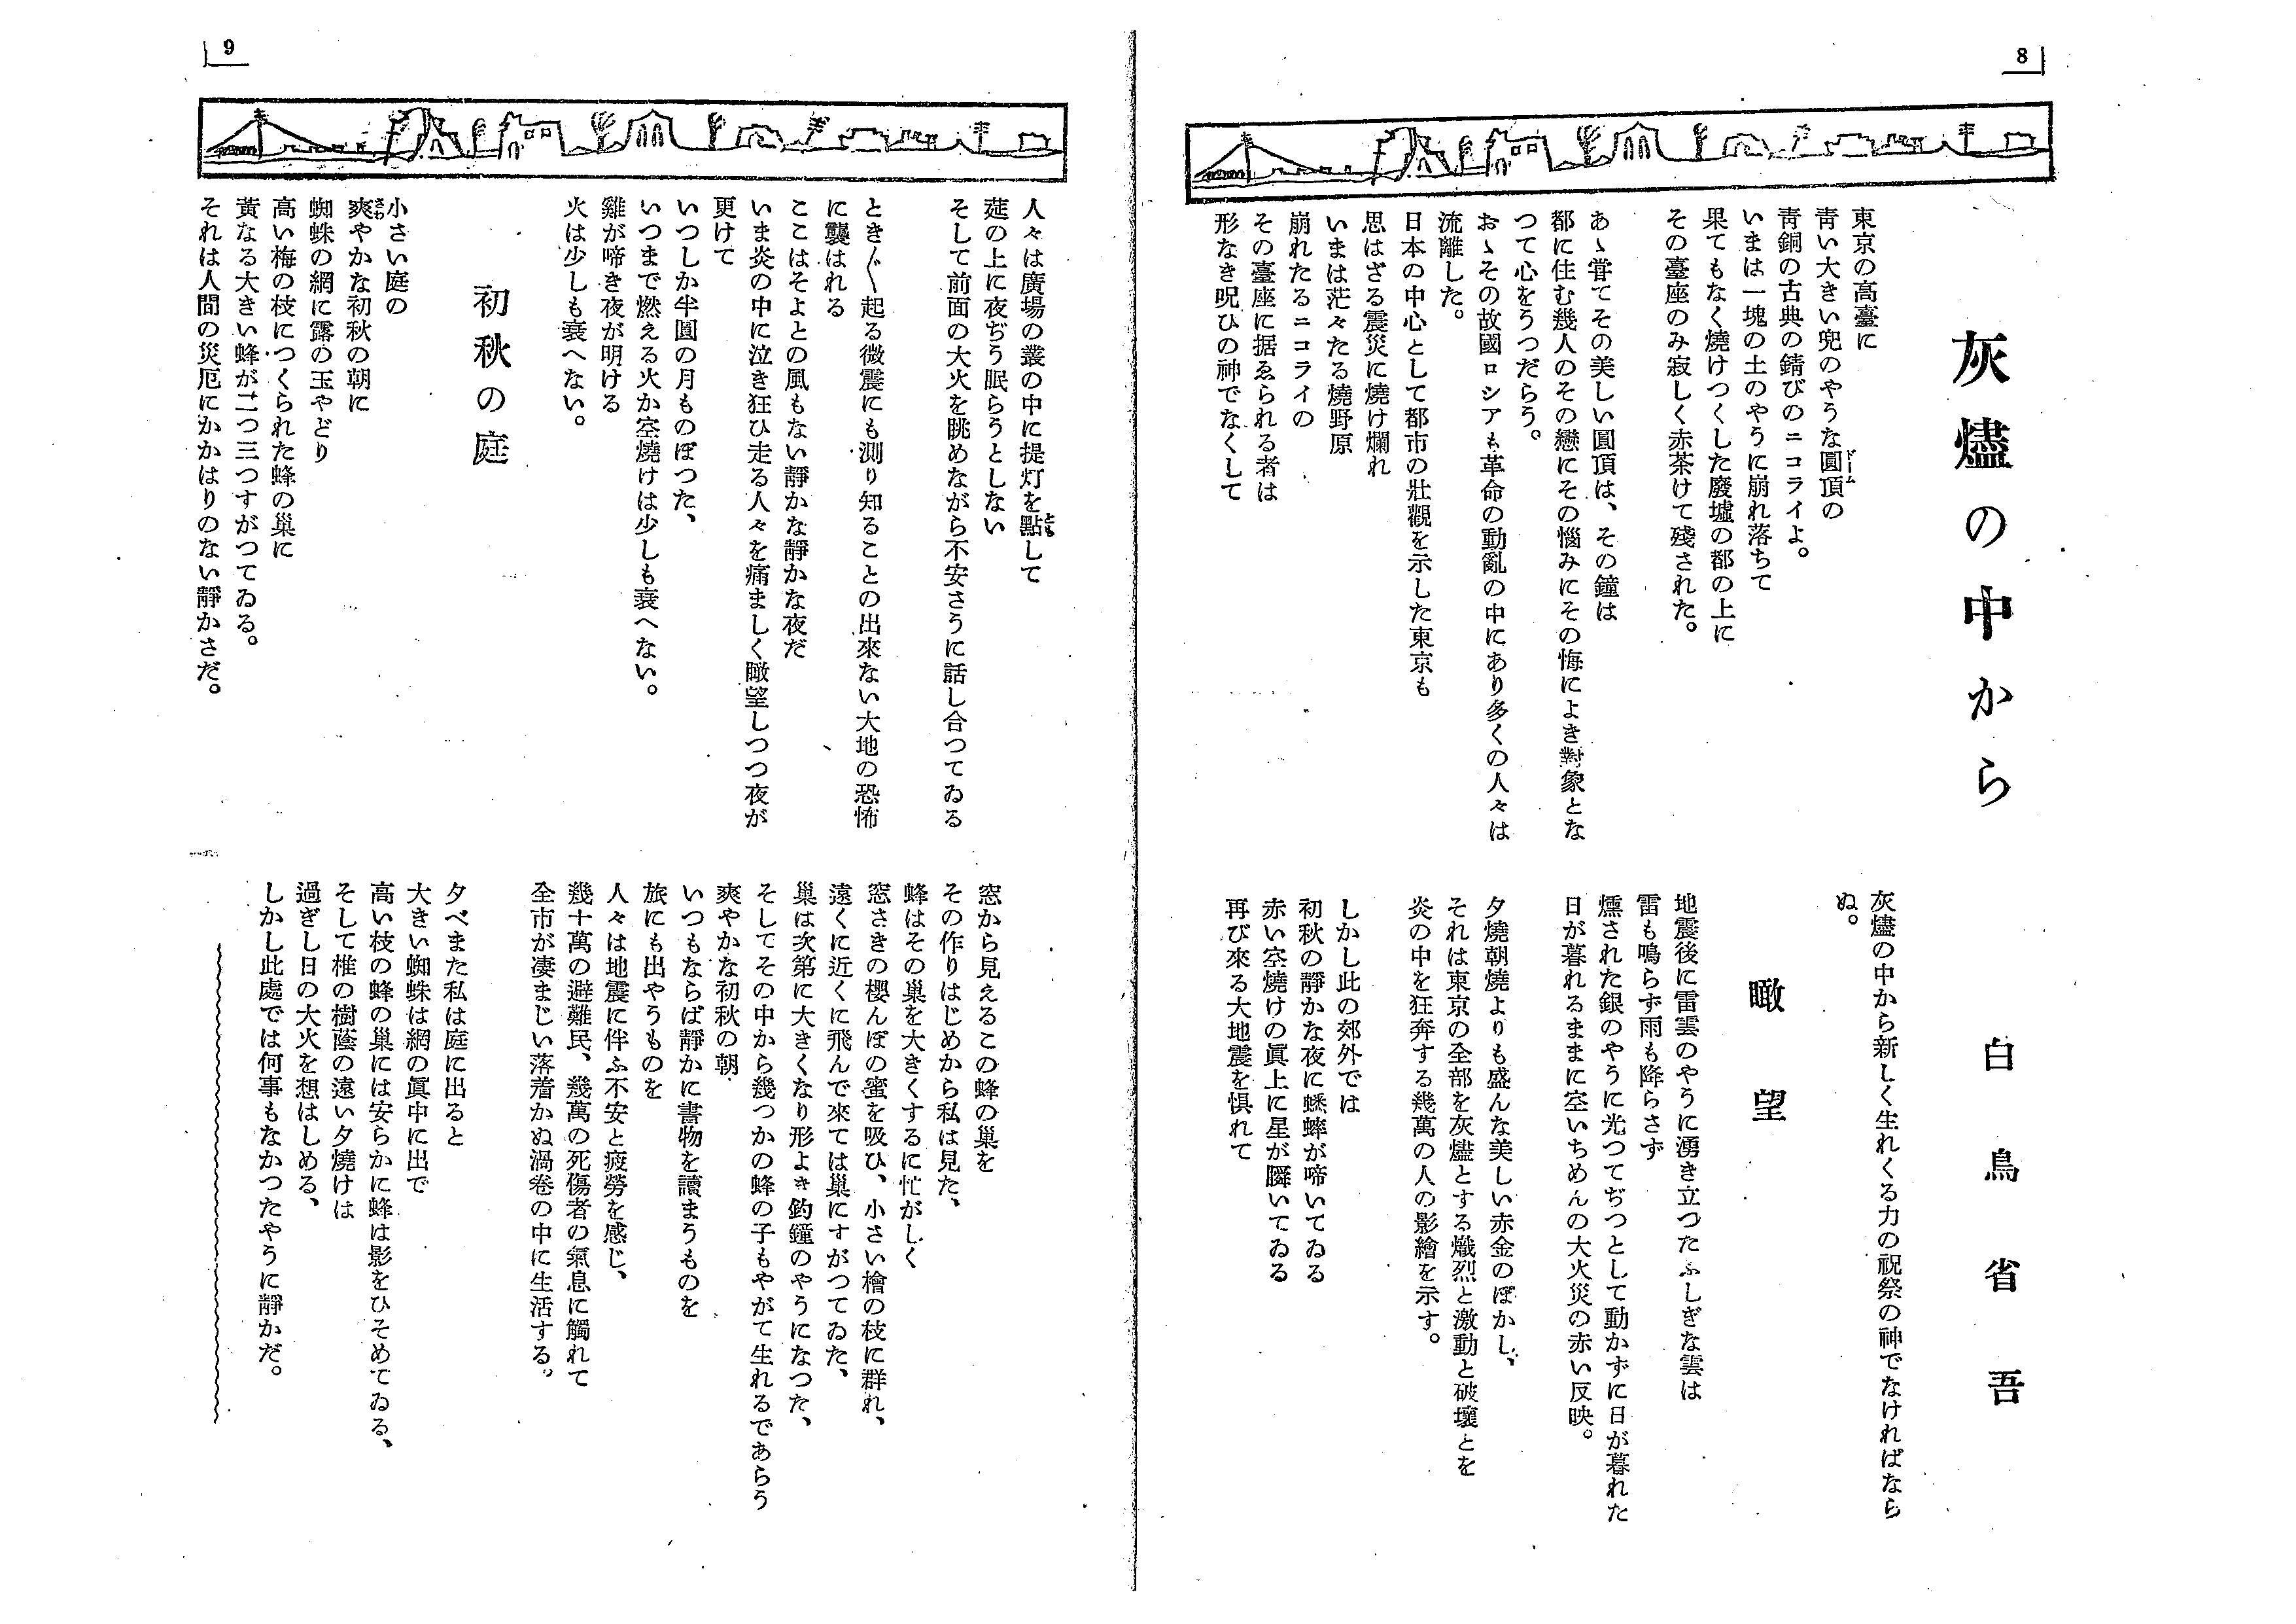 8
灰燼の中から
白鳥省吾
東京の高臺に
靑い大きい兜のやうな圓頂の
ドーム
靑銅の古典の錆びのニコライよ。
いまは一塊の土のやうに崩れ落ちて
果てもなく燒けつくした廢墟の都の上に
その臺座のみ寂しく赤茶けて殘された。
あゝ甞てその美しい圓頂は、その鐘は
都に住む幾人のその戀にその惱みにその悔によき對象とな
つて心をうつだらう。
おゝその故國ロシアも革命の動亂の中にあり多くの人々は
流離した。
日本の中心として都市の壯觀を示した東京も
思はざる震災に燒け爛れ
いまは茫々たる燒野原
崩れたるニコライの
その臺座に据ゑられる者は
形なき呪ひの神でなくして
灰燼の中から新しく生れくる力の祝祭の神でなければなら
ぬ。
瞰望
地震後に雷雲のやうに湧き立つたふしぎな雲は
雷も鳴らず雨も降らさず
燻された銀のやうに光つてぢつとして動かずに日が暮れた
日が暮れるままに空いちめんの大火災の赤い反映。
夕燒朝燒よりも盛んな美しい赤金のぼかし、
それは東京の全部を灰燼とする熾烈と激動と破壞とを
炎の中を狂奔する幾萬の人の影繪を示す。
しかし此の郊外では
初秋の靜かな夜に蟋蟀が啼いてゐる
赤い空燒けの眞上に星が瞬いてゐる
再び來る大地震を惧れて
9
人々は廣場の叢の中に提灯を點して
とも
莚の上に夜ぢう眠らうとしない
そして前面の大火を眺めながら不安さうに話し合つてゐる
とき〴〵起る微震にも測り知ることの出來ない大地の恐怖
に襲はれる
ここはそよとの風もない靜かな靜かな夜だ
いま炎の中に泣き狂ひ走る人々を痛ましく瞰望しつつ夜が
更けて
いつしか半圓の月ものぼつた、
いつまで燃える火か空燒けは少しも衰へない。
雞が啼き夜が明ける
火は少しも衰へない。
初秋の庭
小さい庭の
爽やかな初秋の朝に
さわ
蜘蛛の網に露の玉やどり
高い梅の枝につくられた蜂の巢に
黃なる大きい蜂が二つ三つすがつてゐる。
それは人間の災厄にかかはりのない靜かさだ。
窓から見えるこの蜂の巢を
その作りはじめから私は見た、
蜂はその巢を大きくするに忙がしく
窓さきの櫻んぼの蜜を吸ひ、小さい檜の枝に群れ、
遠くに近くに飛んで來ては巢にすがつてゐた、
巢は次第に大きくなり形よき釣鐘のやうになつた、
そしてその中から幾つかの蜂の子もやがて生れるであらう
爽やかな初秋の朝
いつもならば靜かに書物を讀まうものを
旅にも出やうものを
人々は地震に伴ふ不安と疲勞を感じ、
幾十萬の避難民、幾萬の死傷者の氣息に觸れて
全市が凄まじい落着かぬ渦卷の中に生活する。
夕べまた私は庭に出ると
大きい蜘蛛は網の眞中に出で
高い枝の蜂の巢には安らかに蜂は影をひそめてゐる、
そして椎の樹蔭の遠い夕燒けは
過ぎし日の大火を想はしめる、
しかし此處では何事もなかつたやうに靜かだ。